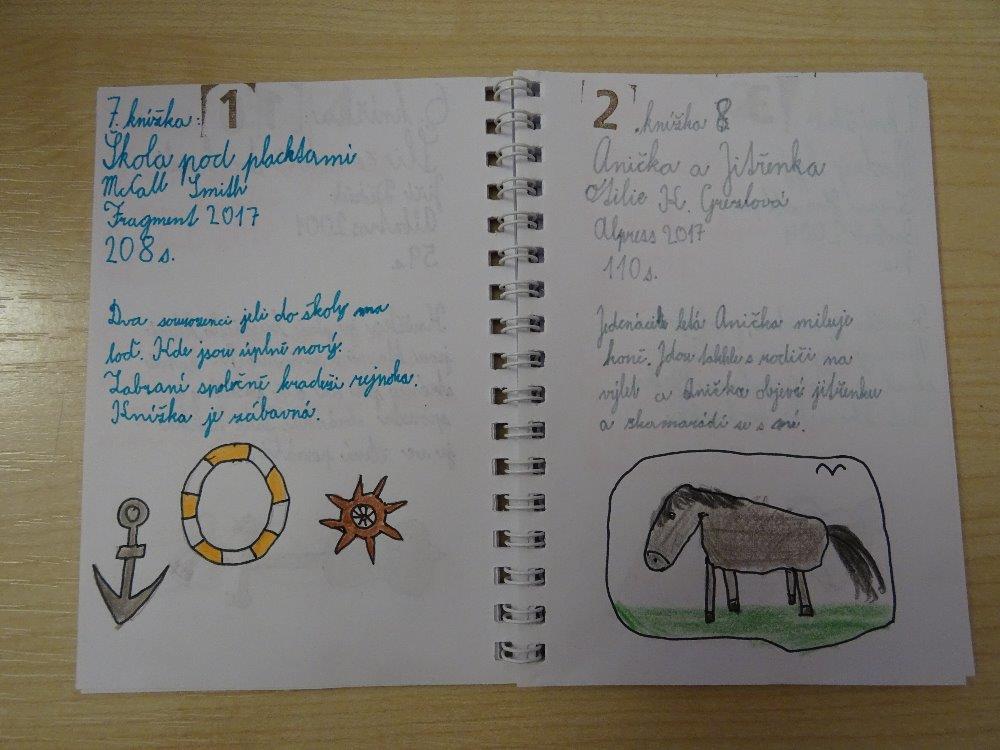 7. knížka:
1
Škola pod plachtami
McCall Smith
Fragment 2017
208s.
Dva sourozenci jeli do školy na
loď. Kde jsou úplně nový.
Zabraní společně kradeži rejnoka.
Knížka je zábavná.
2
.knížka 8
Anička a Jitřenka
Otilie K. Grezlová
Alpress 2017
110s.
Jedenácti letá Anička miluje
koně. Jdou takhle s rodiči na
výlet a Anička objevé jitřenku
a skamarádí se s